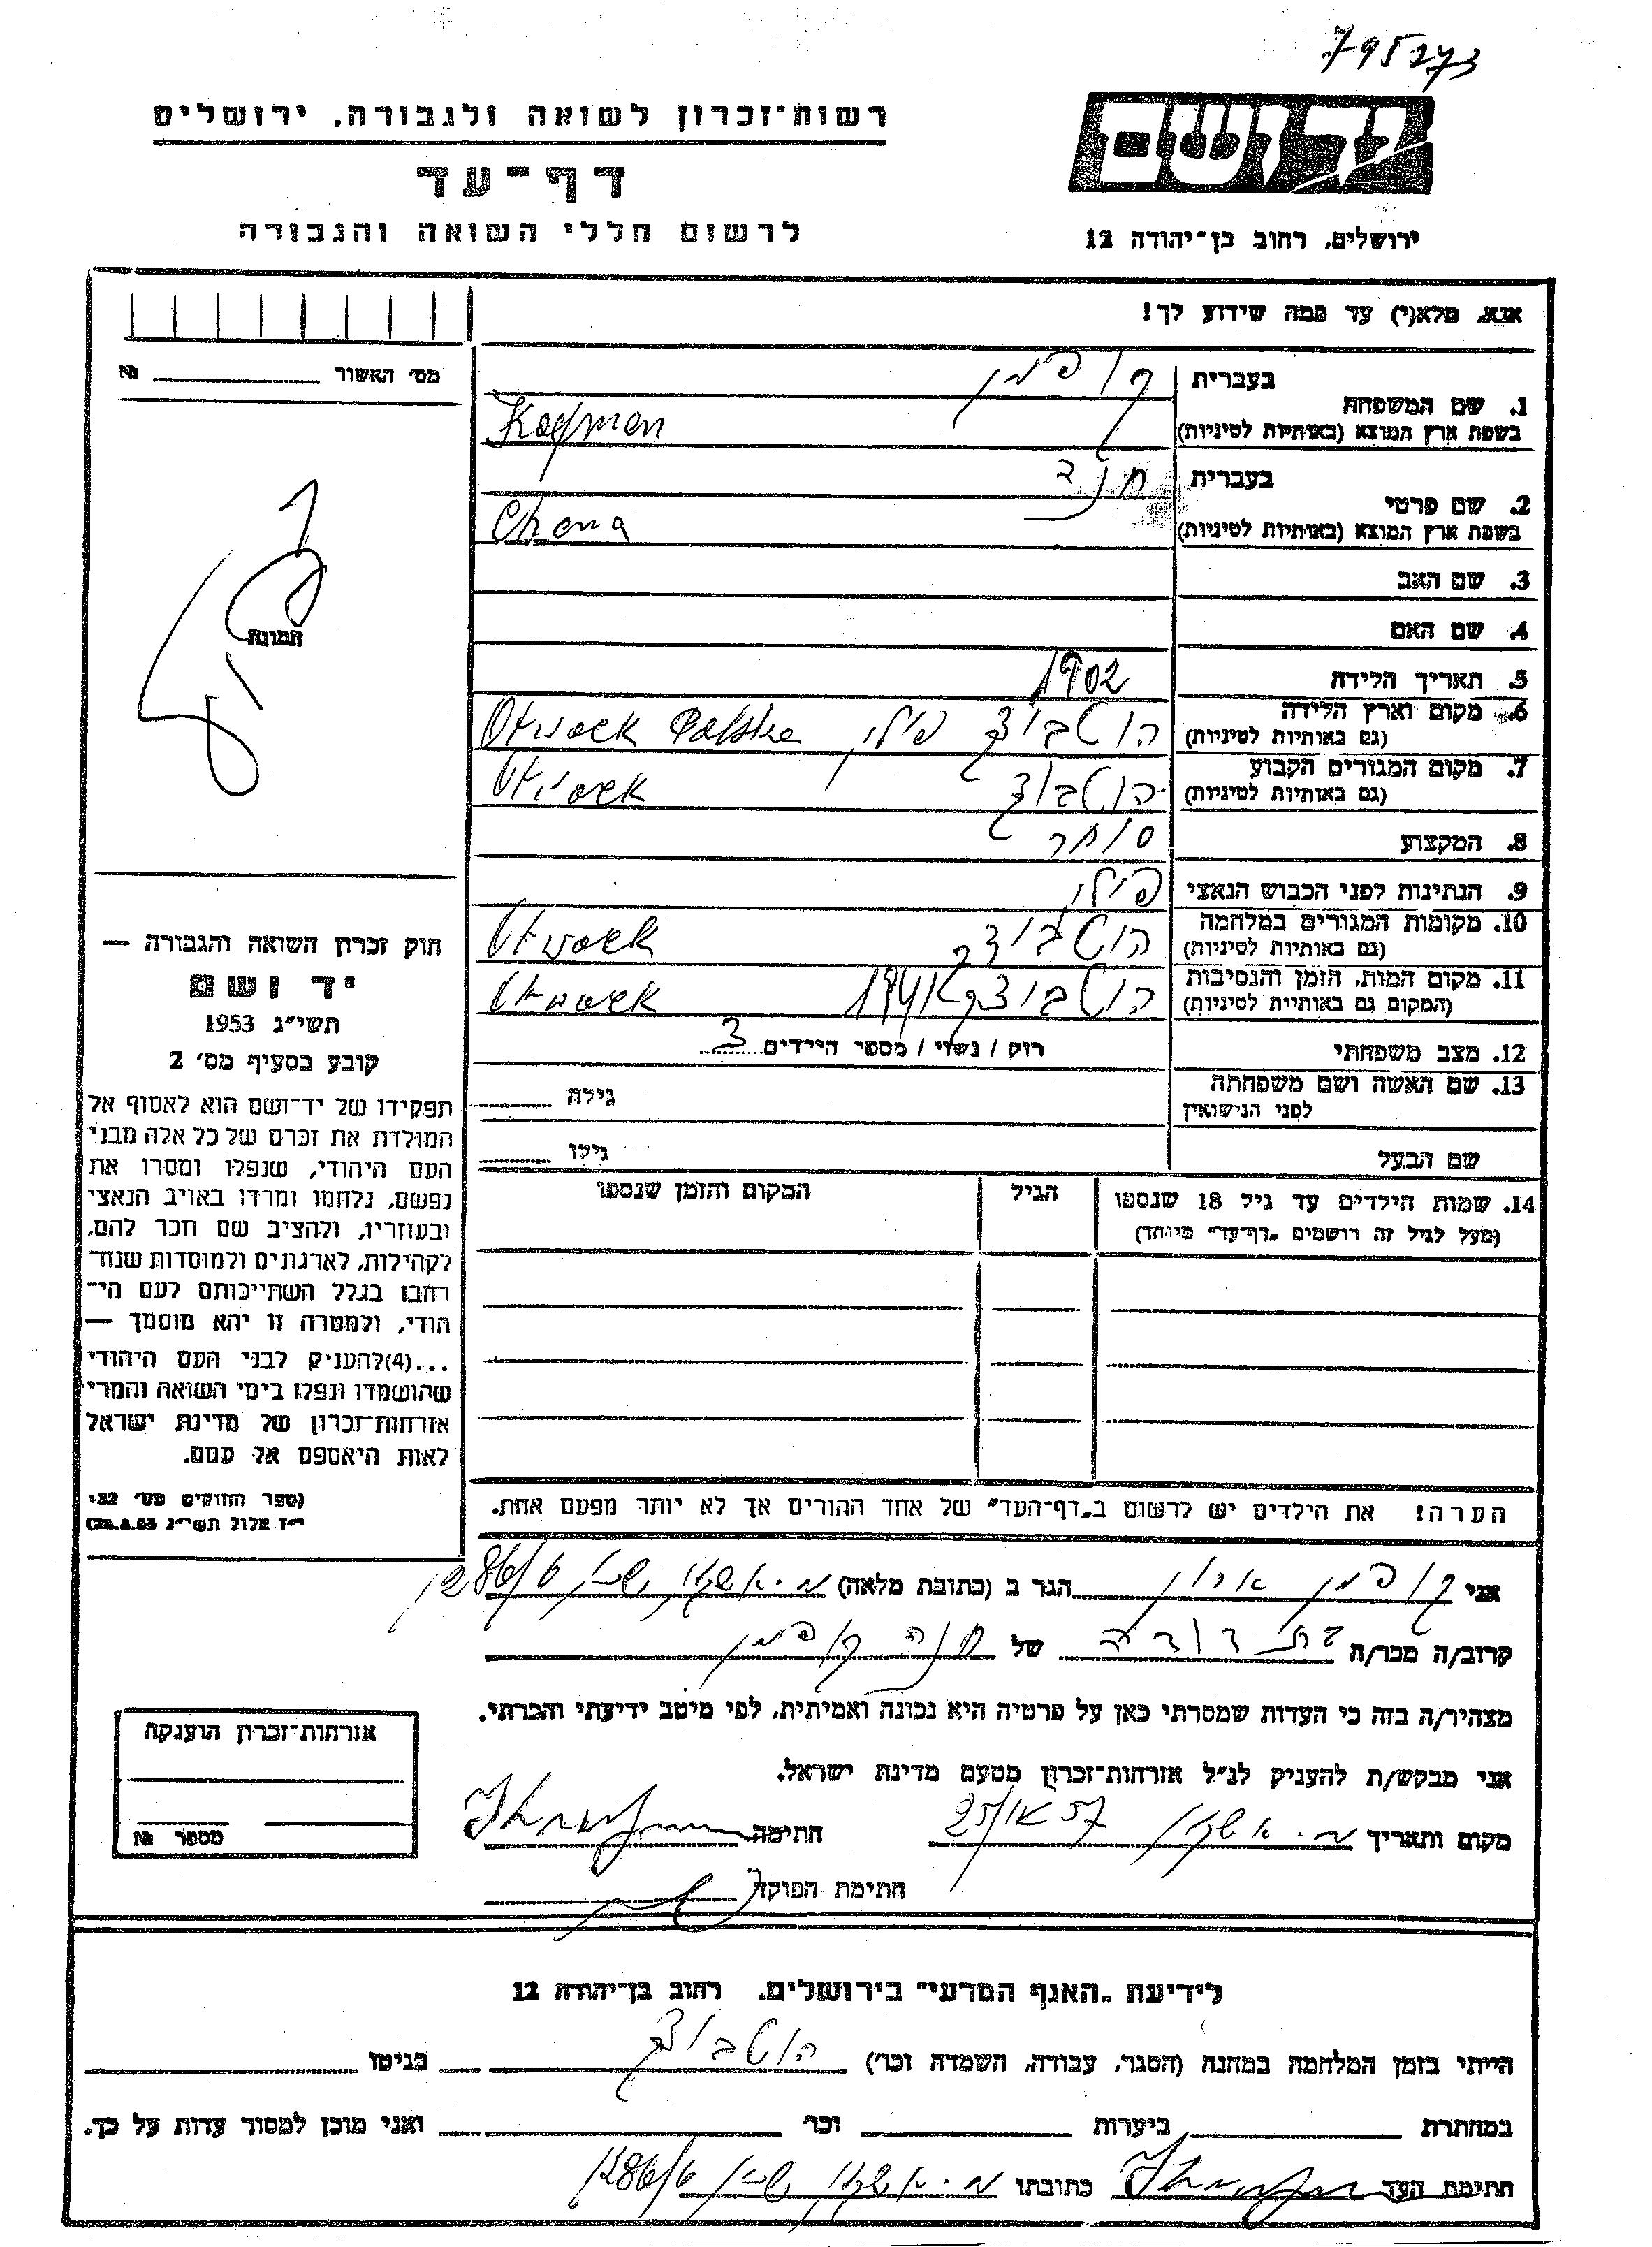 795273
יד ושם
רשות־זכרון לשואה ולגבורה, ירושלים
דף־עד
לרשום חללי השואה והגבורה
ירושלים, רחוב בן־יהודה 12
אנא, מלא(י) עד כמה שידוע לך!
מס׳ האשור № 
1. שם המשפחה
בעברית קופמן
בשפת ארץ המוצא (באותיות לטיניות) Kaofman
2. שם פרטי
בעברית חנה
בשפת ארץ המוצא (באותיות לטיניות) Chana
3. שם האב
4. שם האם
5. תאריך הלידה 1902
6. מקום וארץ הלידה
(גם באותיות לטיניות) הוטבוצק פולין Otwock Polska
7. מקום המגורים הקבוע
(גם באותיות לטיניות) הוטבוצק Otwock
8. המקצוע סוחר
9. הנתינות לפני הכבוש הנאצי פולין
10. מקומות המגורים במלחמה
(גם באותיות לטיניות) הוטבוצק Otwock
11. מקום המות, הזמן והנסיבות
(המקום גם באותיות לטיניות) הוטבוצק 1941 Otwock
12. מצב משפחתי רוק / נשוי / מספר הילדים 3
13. שם האשה ושם משפחתה
לפני הנישואין גילה
שם הבעל גילו
14. שמות הילדים עד גיל 18 שנספו
(מעל לגיל זה רושמים „דף־עד״ מיוחד)
הגיל
המקום והזמן שנספו
הערה! את הילדים יש לרשום ב„דף־העד״ של אחד ההורים אך לא יותר מפעם אחת.
תמונה
חוק זכרון השואה והגבורה —
יד ושם
תשי״ג 1953
קובע בסעיף מס׳ 2
תפקידו של יד־ושם הוא לאסוף אל
המולדת את זכרם של כל אלה מבני
העם היהודי, שנפלו ומסרו את
נפשם, נלחמו ומרדו באויב הנאצי
ובעוזריו, ולהציב שם וזכר להם,
לקהילות, לארגונים ולמוסדות שנח־
רבו בגלל השתייכותם לעם הי־
הודי, ולמטרה זו יהא מוסמך —
...(4)להעניק לבני העם היהודי
שהושמדו ונפלו בימי השואה והמרי
אזרחות־זכרון של מדינת ישראל
לאות היאספם אל עמם.
(ספר החוקים מס׳ 132
י״ז אלול תשי״ג 28.8.53)
אני קופמן הגר ב (כתובת מלאה) 286/6
קרוב/ה מכר/ה של חנה קופמן
מצהיר/ה בזה כי העדות שמסרתי כאן על פרטיה היא נכונה ואמיתית, לפי מיטב ידיעתי והכרתי.
אני מבקש/ת להעניק לנ״ל אזרחות־זכרון מטעם מדינת ישראל.
מקום ותאריך חתימה
חתימת הפוקד
אזרחות־זכרון הוענקה
מספר №
לידיעת „האגף המדעי״ בירושלים, רחוב בן־יהודה 12
הייתי בזמן המלחמה במחנה (הסגר, עבודה, השמדה וכר׳) הוטבוצק בגיטו
במחתרת ביערות וכר׳ ואני מוכן למסור עדות על כך.
חתימת העד כתובתו 286/6